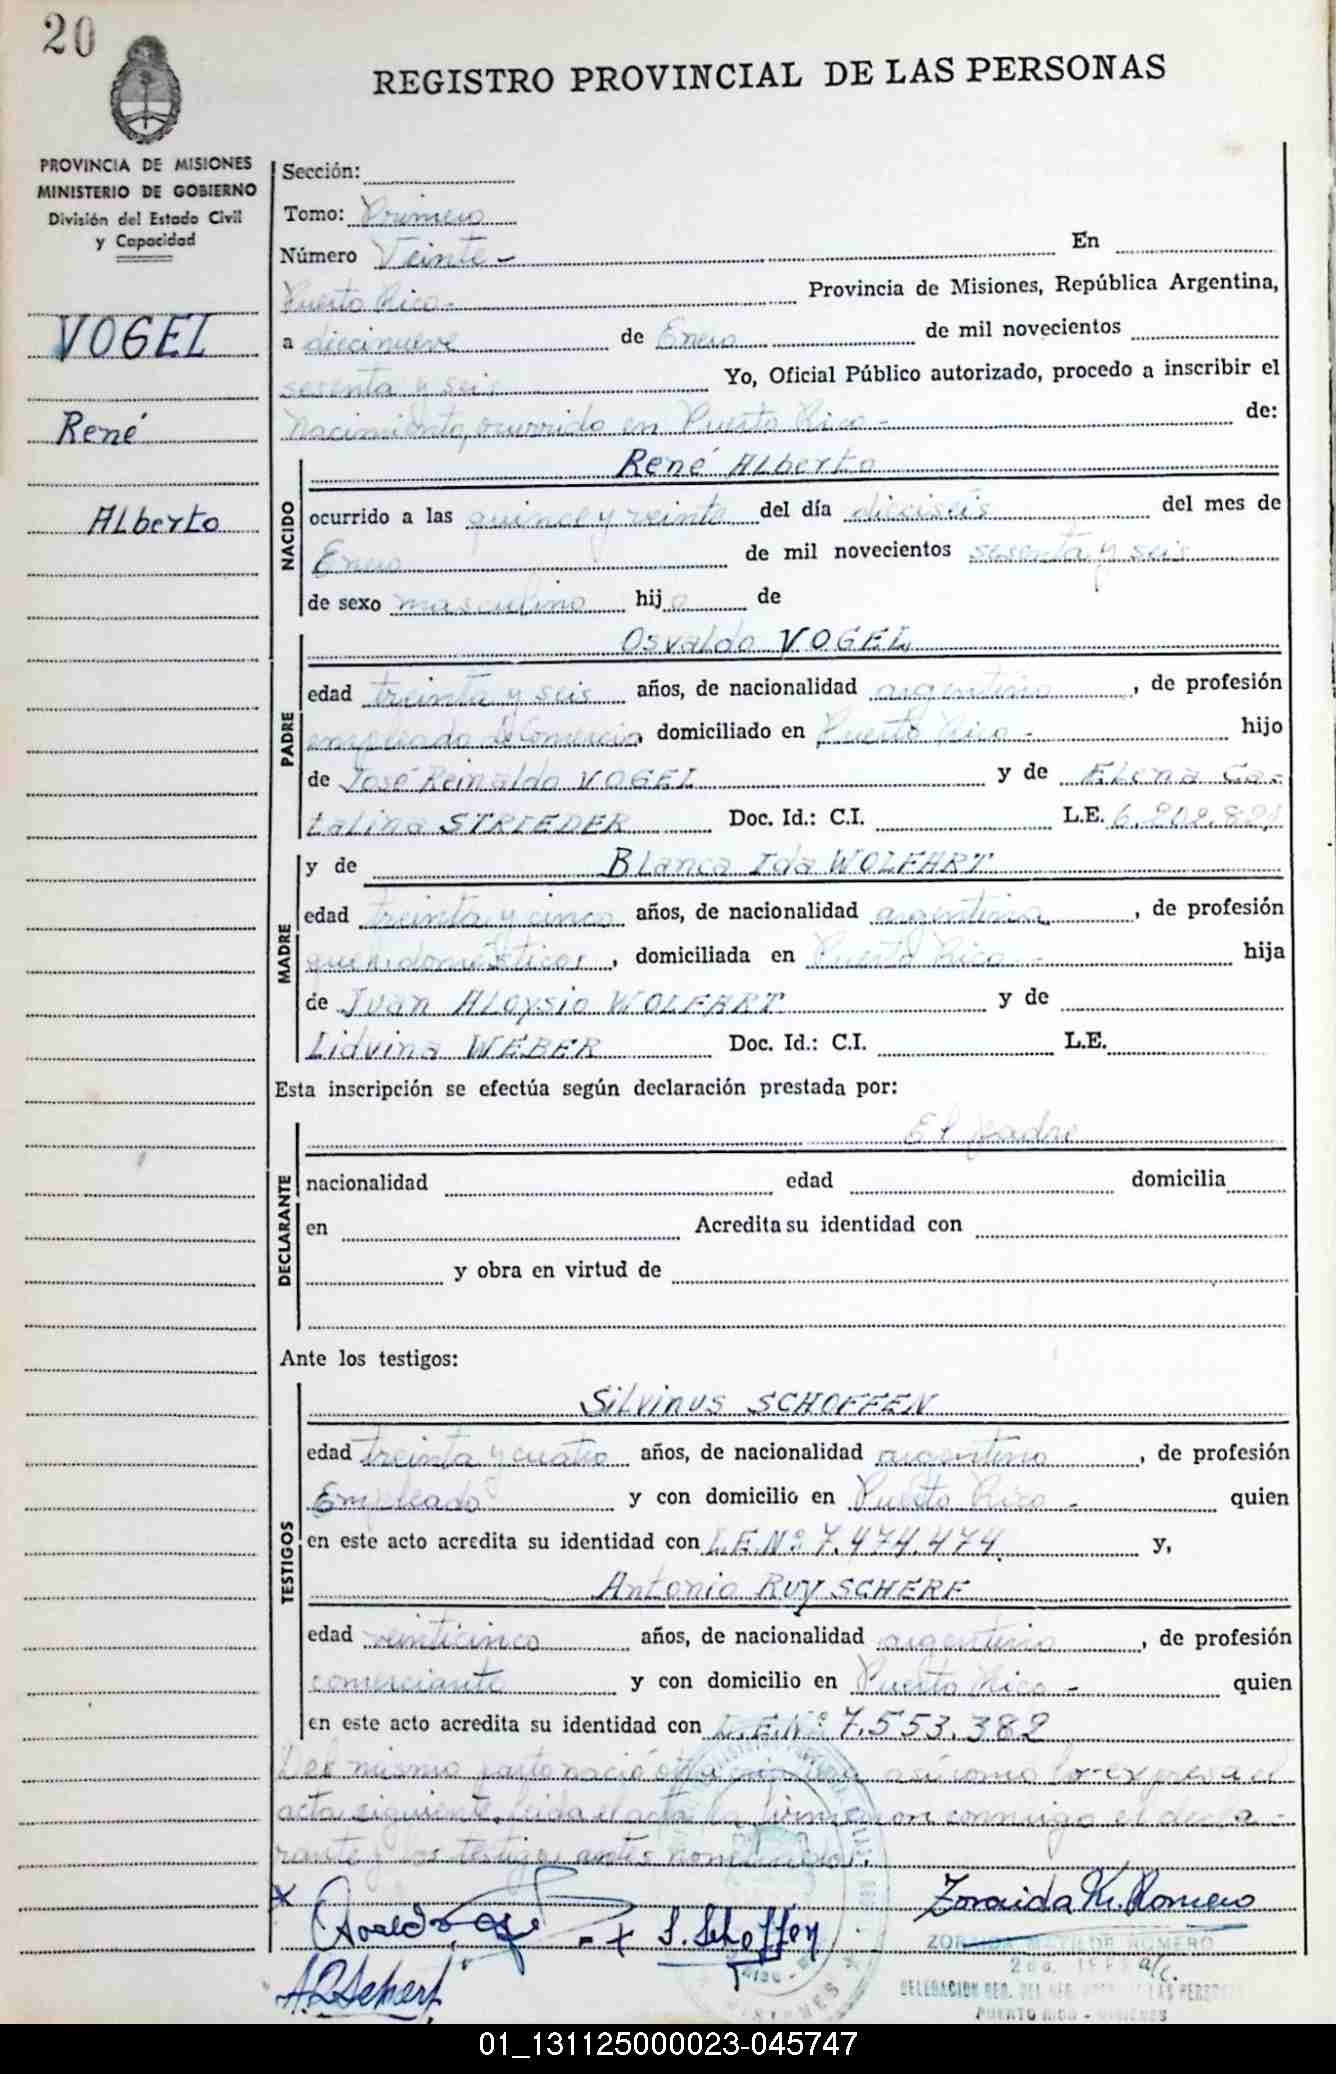 20
REGISTRO PROVINCIAL DE LAS PERSONAS
PROVINCIA DE MISIONES
MINISTERIO DE GOBIERNO
División del Estado Civil
y Capacidad
VOGEL
René
Alberto
Sección:
Tomo: Primero
Número Veinte - En
Puerto Rico - Provincia de Misiones, República Argentina,
a diecinueve de Enero de mil novecientos
sesenta y seis Yo, Oficial Público autorizado, procedo a inscribir el
Nacimiento, ocurrido en Puerto Rico - de:
NACIDO
René Alberto
ocurrido a las quince y veinte del día dieciseis del mes de
Enero de mil novecientos sesenta y seis
de sexo masculino hijo de
PADRE
Osvaldo VOGEL
edad treinta y seis años, de nacionalidad argentino, de profesión
empleado de Comercio, domiciliado en Puerto Rico - hijo
de José Reinaldo VOGEL y de Elena Ca-
talina STRIEDER Doc. Id.: C.I. L.E. 6.202.821
MADRE
y de Blanca Ida WOLFART
edad treinta y cinco años, de nacionalidad argentina, de profesión
domiciliada en Puerto Rico - hija
de Juan Aloysio WOLFART y de
Lidvina WEBER Doc. Id.: C.I. L.E.
Esta inscripción se efectúa según declaración prestada por:
DECLARANTE
El padre
nacionalidad edad domicilia
en Acredita su identidad con
y obra en virtud de
Ante los testigos:
TESTIGOS
Silvinus SCHOFFEN
edad treinta y cuatro años, de nacionalidad argentino, de profesión
Empleado y con domicilio en Puerto Rico - quien
en este acto acredita su identidad con L.E.Nº 7.474.474 y,
Antonio RUY SCHERF
edad veinticinco años, de nacionalidad argentino, de profesión
comerciante y con domicilio en Puerto Rico - quien
en este acto acredita su identidad con L.E.Nº 7.553.382
Del mismo parto nació otra criatura así como lo expresa el
acta siguiente. Leida el acta la firmaron conmigo el decla-
rante y los testigos antes nombrados.
S. Schoffen
Zoraida M. Romero
A.R.Scherf
ZORAIDA MATILDE ROMERO
a/c.
PUERTO RICO - MISIONES
01_131125000023-045747